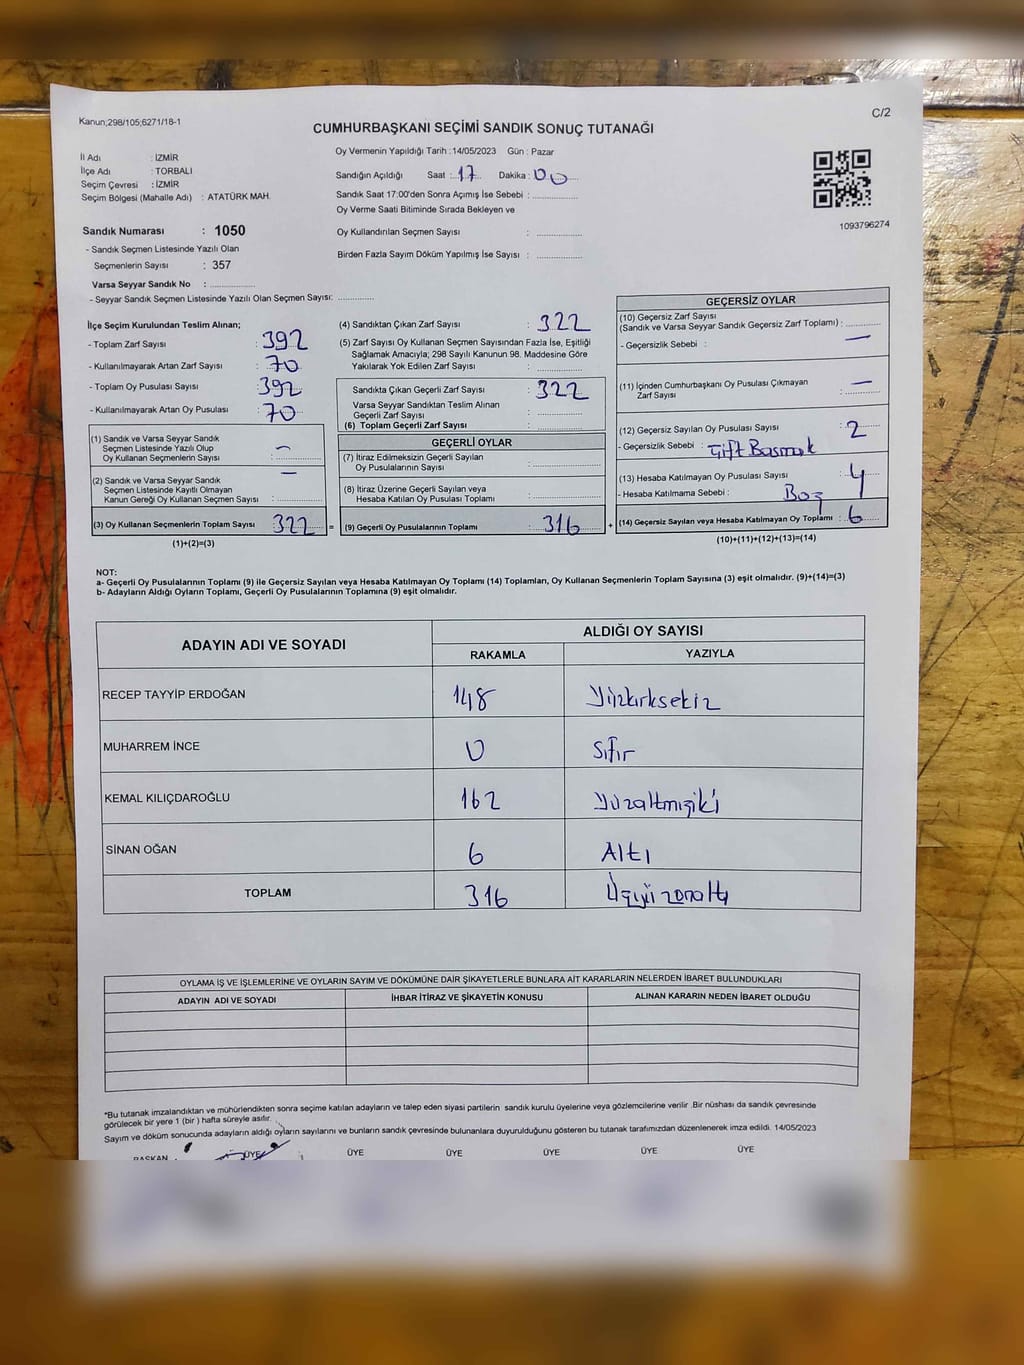 Kanun;298/105;6271/18-1
C/2
CUMHURBAŞKANI SEÇİMİ SANDIK SONUÇ TUTANAĞI
İl Adı : İZMİR
İlçe Adı : TORBALI
Seçim Çevresi : İZMİR
Seçim Bölgesi (Mahalle Adı) : ATATÜRK MAH.
Oy Vermenin Yapıldığı Tarih : 14/05/2023 Gün : Pazar
Sandığın Açıldığı Saat : 17 Dakika : 00
Sandık Saat 17:00'den Sonra Açımış İse Sebebi :
Oy Verme Saati Bitiminde Sırada Bekleyen ve
Oy Kullandırılan Seçmen Sayısı :
Birden Fazla Sayım Döküm Yapılmış İse Sayısı :
1093796274
Sandık Numarası : 1050
- Sandık Seçmen Listesinde Yazılı Olan
Seçmenlerin Sayısı : 357
Varsa Seyyar Sandık No :
- Seyyar Sandık Seçmen Listesinde Yazılı Olan Seçmen Sayısı:
İlçe Seçim Kurulundan Teslim Alınan;
- Toplam Zarf Sayısı : 392
- Kullanılmayarak Artan Zarf Sayısı : 70
- Toplam Oy Pusulası Sayısı : 392
- Kullanılmayarak Artan Oy Pusulası : 70
(1) Sandık ve Varsa Seyyar Sandık
Seçmen Listesinde Yazılı Olup
Oy Kullanan Seçmenlerin Sayısı : —
(2) Sandık ve Varsa Seyyar Sandık
Seçmen Listesinde Kayıtlı Olmayan
Kanun Gereği Oy Kullanan Seçmen Sayısı : —
(3) Oy Kullanan Seçmenlerin Toplam Sayısı 322 =
(1)+(2)=(3)
(4) Sandıktan Çıkan Zarf Sayısı : 322
(5) Zarf Sayısı Oy Kullanan Seçmen Sayısından Fazla İse, Eşitliği
Sağlamak Amacıyla; 298 Sayılı Kanunun 98. Maddesine Göre
Yakılarak Yok Edilen Zarf Sayısı :
Sandıkta Çıkan Geçerli Zarf Sayısı : 322
Varsa Seyyar Sandıktan Teslim Alınan
Geçerli Zarf Sayısı :
(6) Toplam Geçerli Zarf Sayısı :
GEÇERLİ OYLAR
(7) İtiraz Edilmeksizin Geçerli Sayılan
Oy Pusulalarının Sayısı :
(8) İtiraz Üzerine Geçerli Sayılan veya
Hesaba Katılan Oy Pusulası Toplamı :
(9) Geçerli Oy Pusulalarının Toplamı : 316 +
GEÇERSİZ OYLAR
(10) Geçersiz Zarf Sayısı
(Sandık ve Varsa Seyyar Sandık Geçersiz Zarf Toplamı) :
- Geçersizlik Sebebi : —
(11) İçinden Cumhurbaşkanı Oy Pusulası Çıkmayan
Zarf Sayısı : —
(12) Geçersiz Sayılan Oy Pusulası Sayısı : 2
- Geçersizlik Sebebi : Çift Basmak
(13) Hesaba Katılmayan Oy Pusulası Sayısı : 4
- Hesaba Katılmama Sebebi : Boş
(14) Geçersiz Sayılan veya Hesaba Katılmayan Oy Toplamı : 6
(10)+(11)+(12)+(13)=(14)
NOT:
a- Geçerli Oy Pusulalarının Toplamı (9) ile Geçersiz Sayılan veya Hesaba Katılmayan Oy Toplamı (14) Toplamları, Oy Kullanan Seçmenlerin Toplam Sayısına (3) eşit olmalıdır. (9)+(14)=(3)
b- Adayların Aldığı Oyların Toplamı, Geçerli Oy Pusulalarının Toplamına (9) eşit olmalıdır.
ADAYIN ADI VE SOYADI ALDIĞI OY SAYISI
RAKAMLA YAZIYLA
RECEP TAYYİP ERDOĞAN 148 Yüzkırksekiz
MUHARREM İNCE 0 Sıfır
KEMAL KILIÇDAROĞLU 162 Yüzaltmışiki
SİNAN OĞAN 6 Altı
TOPLAM 316 Üçyüzonaltı
OYLAMA İŞ VE İŞLEMLERİNE VE OYLARIN SAYIM VE DÖKÜMÜNE DAİR ŞİKAYETLERLE BUNLARA AİT KARARLARIN NELERDEN İBARET BULUNDUKLARI
ADAYIN ADI VE SOYADI İHBAR İTİRAZ VE ŞİKAYETİN KONUSU ALINAN KARARIN NEDEN İBARET OLDUĞU
*Bu tutanak imzalandıktan ve mühürlendikten sonra seçime katılan adayların ve talep eden siyasi partilerin sandık kurulu üyelerine veya gözlemcilerine verilir .Bir nüshası da sandık çevresinde
görülecek bir yere 1 (bir ) hafta süreyle asılır.
Sayım ve döküm sonucunda adayların aldığı oyların sayılarını ve bunların sandık çevresinde bulunanlara duyurulduğunu gösteren bu tutanak tarafımızdan düzenlenerek imza edildi. 14/05/2023
BAŞKAN ÜYE ÜYE ÜYE ÜYE ÜYE ÜYE